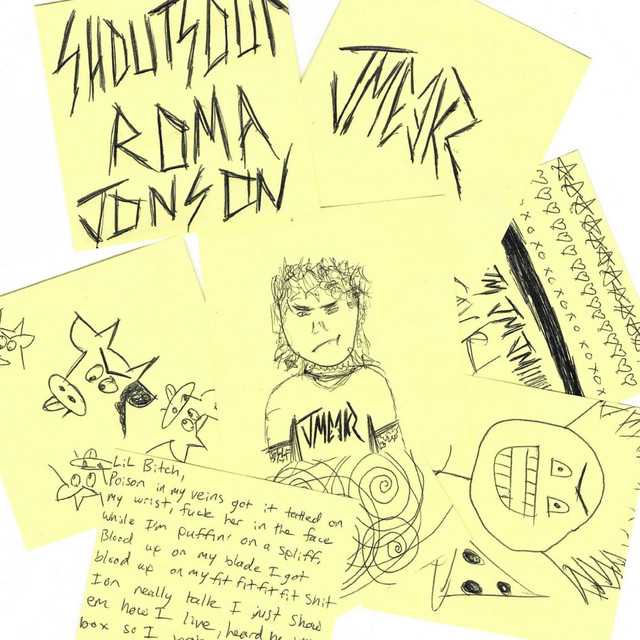 SHOUTSOUT
ROMA
JONSON
JMCJKR
xoxoxoxoxoxoxoxo
JMCJKR
LiL Bitch,
Poison in my veins got it tatted on
my wrist, fuck her in the face
while I'm puffin' on a spliff,
Blood up on my blade I got
blood up on my fit fit fit fit shit
Ion really talk I just show
em how I live, heard he
box so I